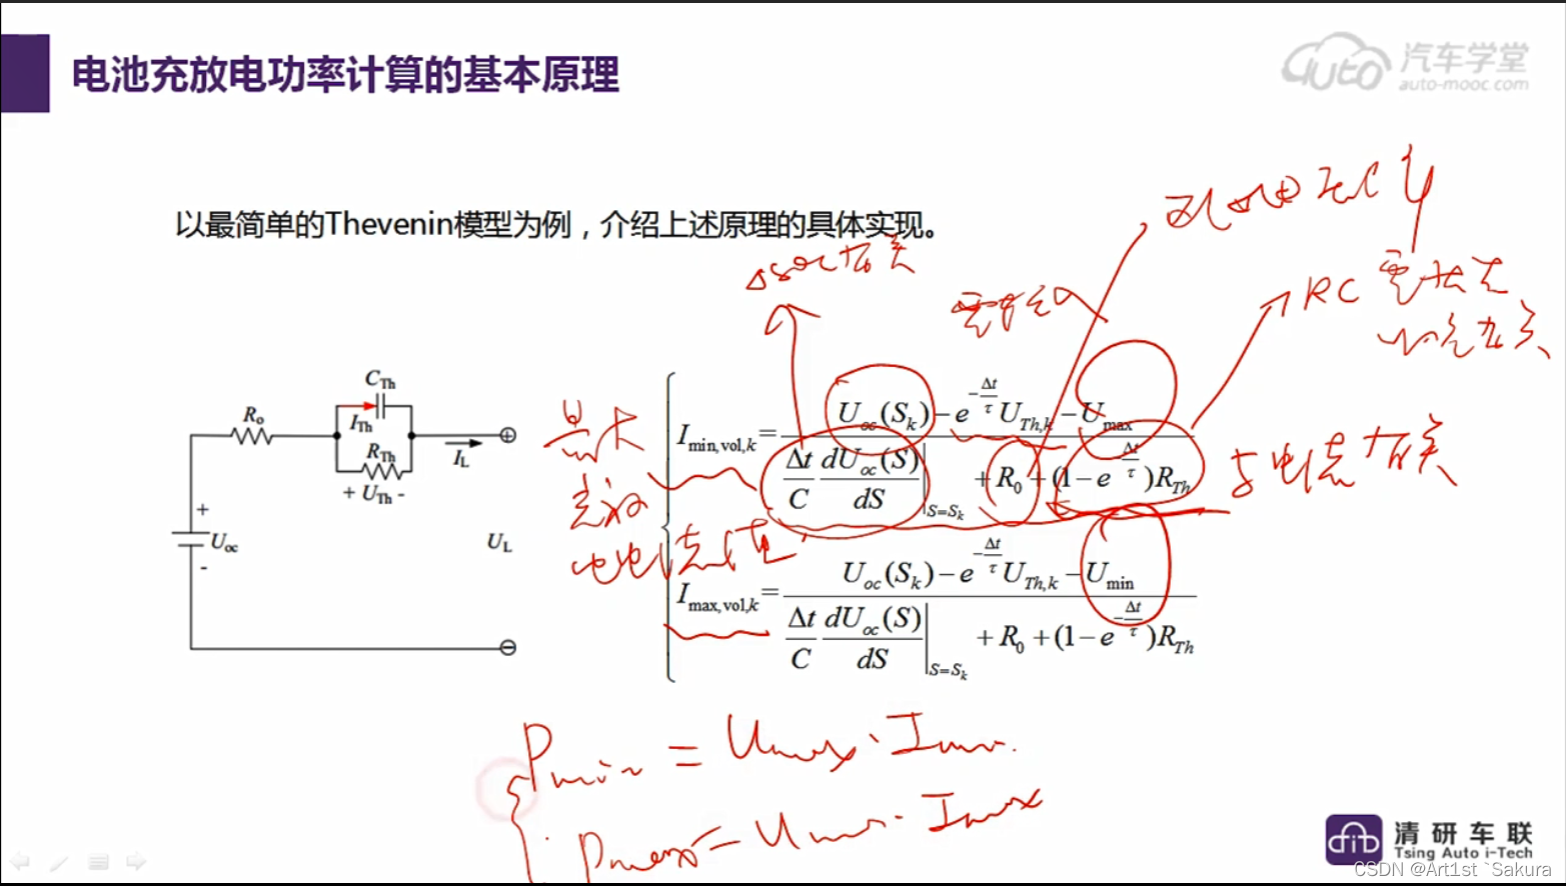 电池充放电功率计算的基本原理
auto 汽车学堂
auto-mooc.com
以最简单的Thevenin模型为例，介绍上述原理的具体实现。
ΔSOC有关
RC
C_Th
R_o
I_Th
R_Th
I_L
+ U_Th -
+
U_oc
-
U_L
最大
与电流有关
I_min,vol,k = (U_oc(S_k) - e^(-Δt/τ) U_Th,k - U_max) / (Δt/C dU_oc(S)/dS |_S=S_k + R_0 + (1 - e^(-Δt/τ)) R_Th)
I_max,vol,k = (U_oc(S_k) - e^(-Δt/τ) U_Th,k - U_min) / (Δt/C dU_oc(S)/dS |_S=S_k + R_0 + (1 - e^(-Δt/τ)) R_Th)
P_min = U_max · I_min
P_max = U_min · I_max
清研车联
Tsing Auto i-Tech
CSDN @Art1st `Sakura